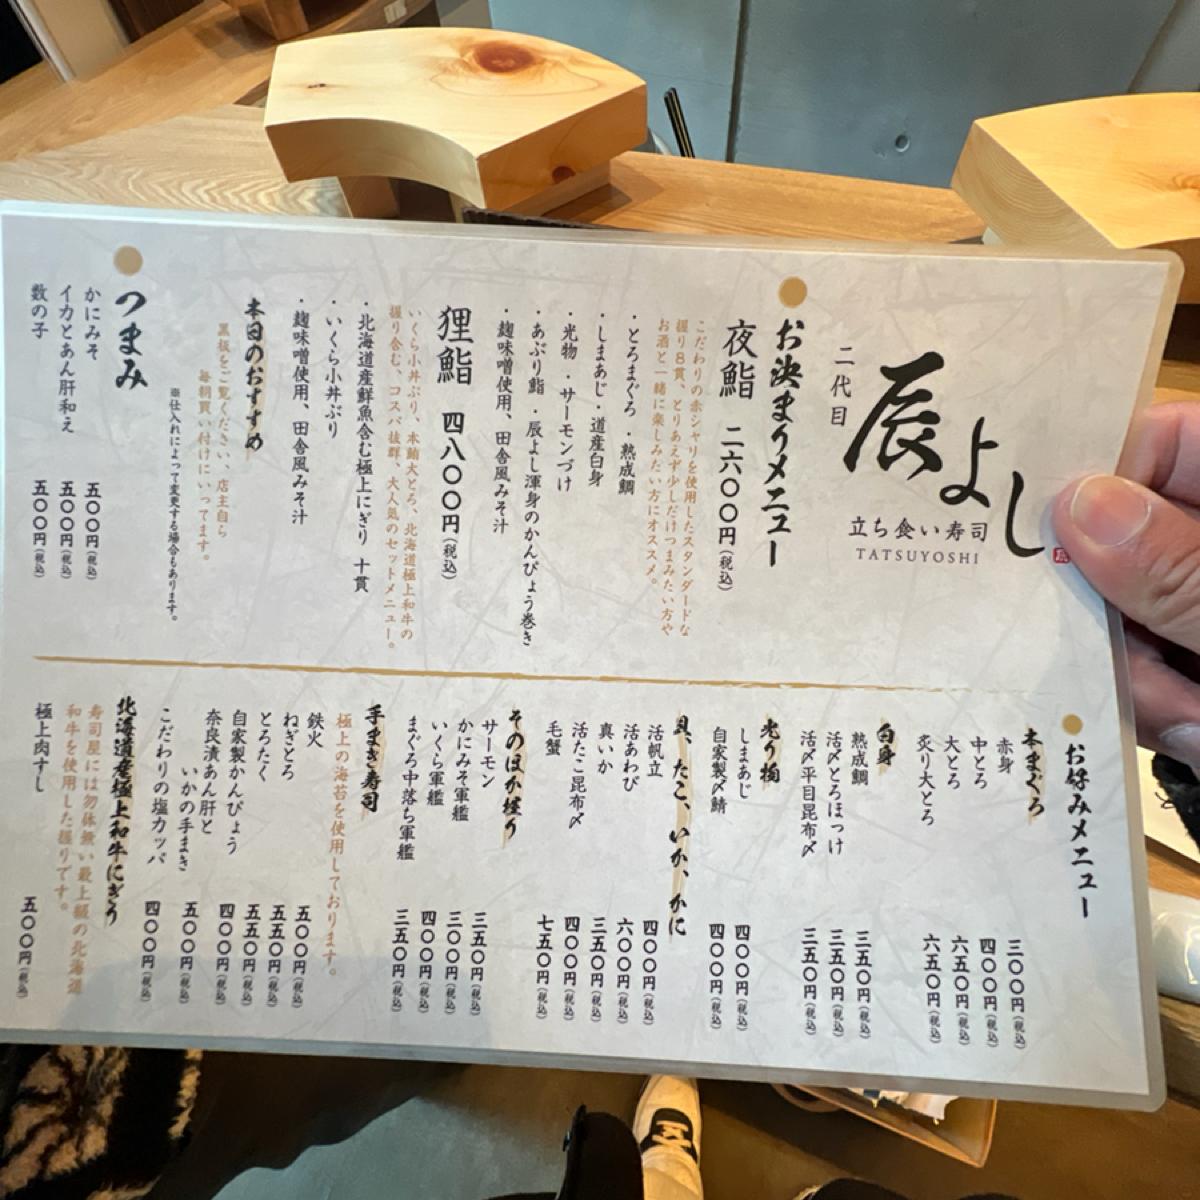 二代目
辰よし
立ち食い寿司
TATSUYOSHI
お決まりメニュー
夜鮨 二六〇〇円(税込)
こだわりの赤シャリを使用したスタンダードな
握り8貫、とりあえず少しだけつまみたい方や
お酒と一緒に楽しみたい方にオススメ。
・とろまぐろ ・熟成鯛
・しまあじ ・道産白身
・光物 ・サーモンづけ
・あぶり鮨 ・辰よし渾身のかんぴょう巻き
・麹味噌使用、田舎風みそ汁
狸鮨 四八〇〇円(税込)
いくら小丼ぶり、本鮪大とろ、北海道極上和牛の
握り含む、コスパ抜群、大人気のセットメニュー。
・北海道産鮮魚含む極上にぎり 十貫
・いくら小丼ぶり
・麹味噌使用、田舎風みそ汁
本日のおすすめ
黒板をご覧ください、店主自ら
毎朝買い付けにいってます。
※仕入れによって変更する場合もあります。
つまみ
かにみそ 五〇〇円(税込)
イカとあん肝和え 五〇〇円(税込)
数の子 五〇〇円(税込)
お好みメニュー
本まぐろ
赤身 三〇〇円(税込)
中とろ 四〇〇円(税込)
大とろ 六五〇円(税込)
炙り大とろ 六五〇円(税込)
白身
熟成鯛 三五〇円(税込)
活〆とろほっけ 三五〇円(税込)
活〆平目昆布〆 三五〇円(税込)
光り物
しまあじ 四〇〇円(税込)
自家製〆鯖 四〇〇円(税込)
貝、たこ、いか、かに
活帆立 四〇〇円(税込)
活あわび 六〇〇円(税込)
真いか 三五〇円(税込)
活たこ昆布〆 四〇〇円(税込)
毛蟹 七五〇円(税込)
そのほか握り
サーモン 三五〇円(税込)
かにみそ軍艦 三〇〇円(税込)
いくら軍艦 四〇〇円(税込)
まぐろ中落ち軍艦 三五〇円(税込)
手まき寿司
極上の海苔を使用しております。
鉄火 五〇〇円(税込)
ねぎとろ 五五〇円(税込)
とろたく 五五〇円(税込)
自家製かんぴょう 四〇〇円(税込)
奈良漬あん肝と
いかの手まき 五〇〇円(税込)
こだわりの塩カッパ 四〇〇円(税込)
北海道産極上和牛にぎり
寿司屋には勿体無い最上級の北海道
和牛を使用した握りです。
極上肉すし 五〇〇円(税込)